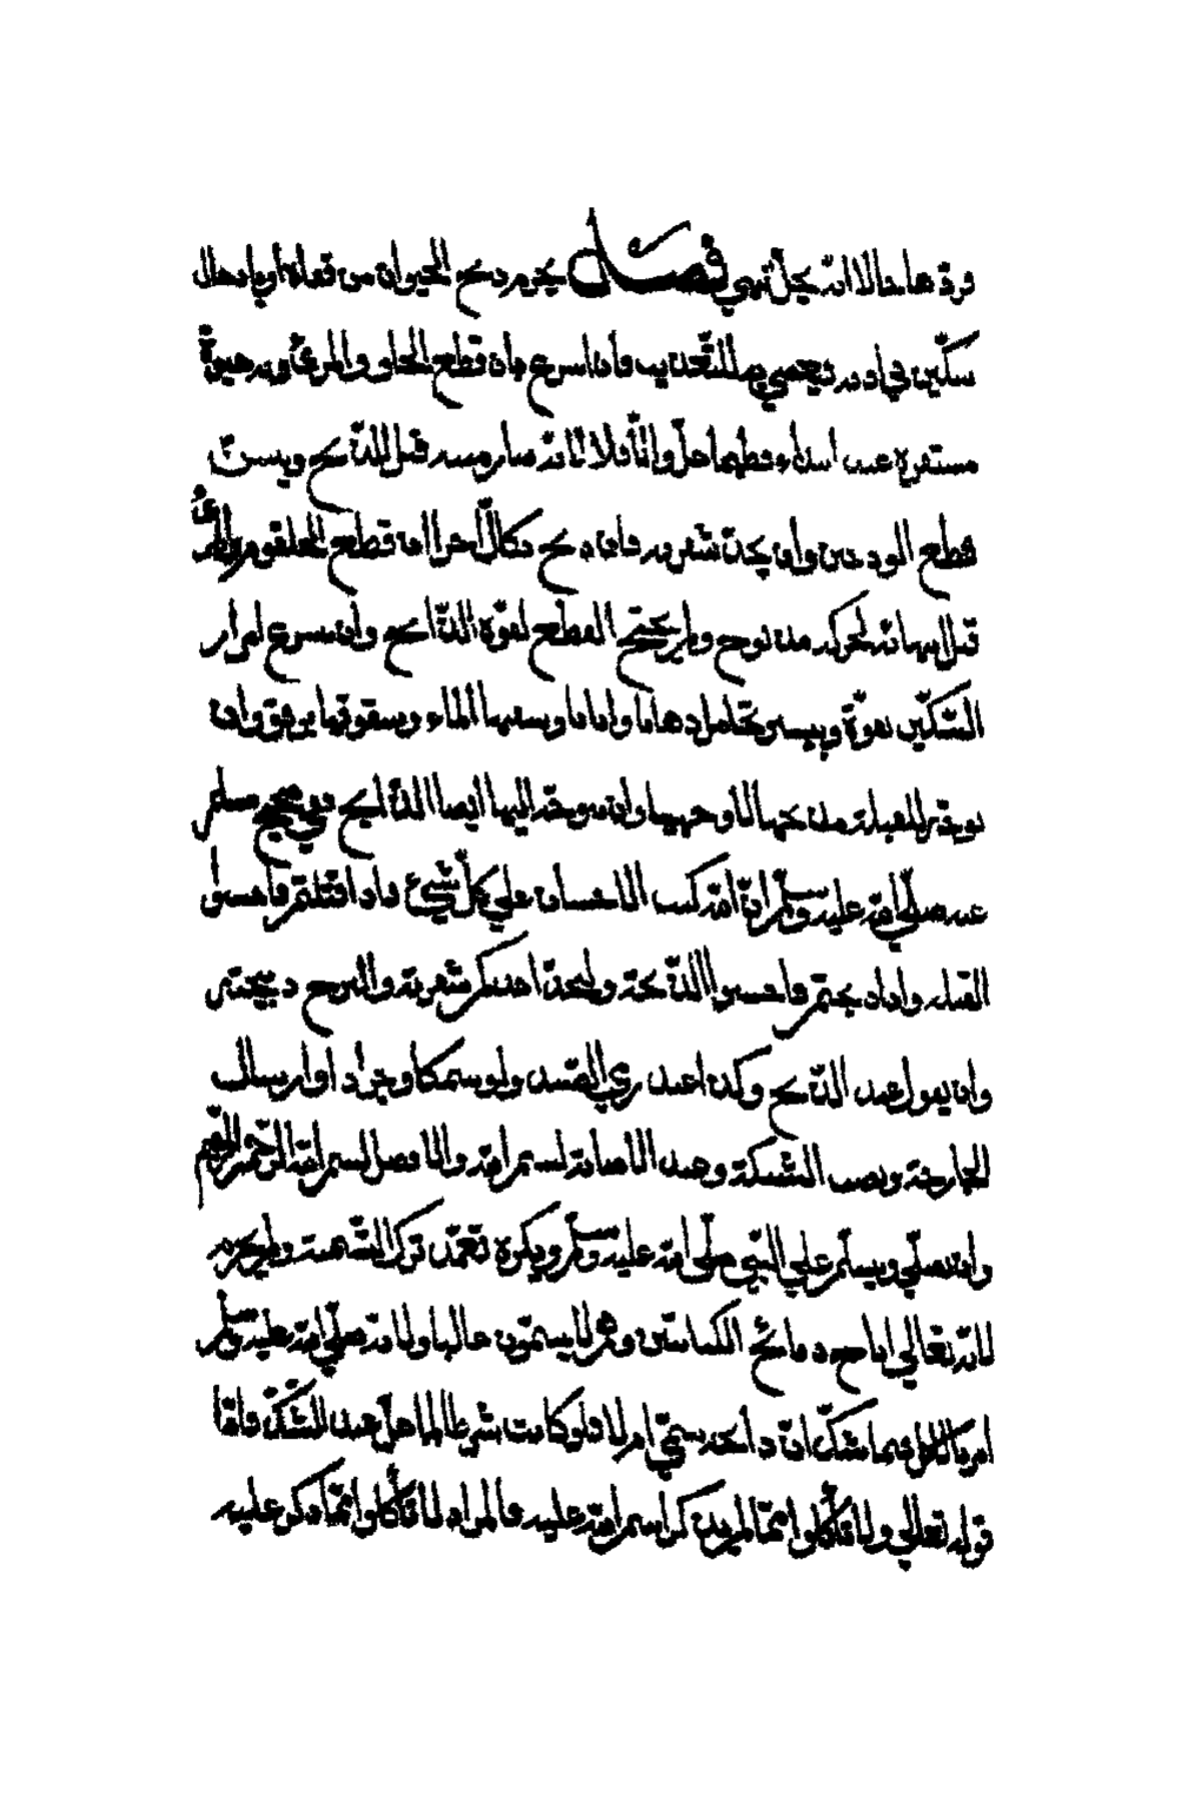 فصل يحرم ذبح الحيوان من قفاه أو بادخال
سكين في اذنه فيعصي به للتعذيب فان اسرع بان قطع الحلقوم والمرئ وبه حيوة
مستقرة عند ابتداء قطعهما حل والا فلا لانه صار ميتة قبل الذبح ويسن
قطع الودجين وان يحد شفرته فان ذبح بكال اجزا ان قطع الحلقوم والمرئ
قبل انتهائه لحركة مذبوح ولم يحتج القطع لقوة الذابح وان يسرع امرار
السكين بقوة ويسير تحامل ذهابا وايابا ويسقيها الماء ويسوقها برفق وان
يوجه للقبلة مذبحها لا وجهها وان يتوجه اليها ايضا الذابح ففي صحيح مسلم
عنه صلى الله عليه وسلم ان الله كتب الاحسان علي كل شيئ فاذا قتلتم فاحسنوا
القتلة واذا ذبحتم فاحسنوا الذبحة وليحد احدكم شفرته وليرح ذبيحته
وان يقول عند الذبح وكذا عند رمي الصيد ولو سمكا وجرادا وارسال
الجارحة ونصب الشبكة وعند الاصابة بسم الله والافضل بسم الله الرحمن الرحيم
وان يصلي ويسلم علي النبي صلى الله عليه وسلم ويكره تعمد ترك التسمية ولم يحرم
لان الله تعالي اباح ذبائح الكتابيين وهم لا يسمون غالبا ولانه صلى الله عليه وسلم
امر بالاكل فيما شك ان ذابحه سمي ام لا فلو كانت شرطا لما حل عند الشك واما
قوله تعالي ولا تأكلوا مما لم يذكر اسم الله عليه فالمراد لا تأكلوا مما ذكر عليه